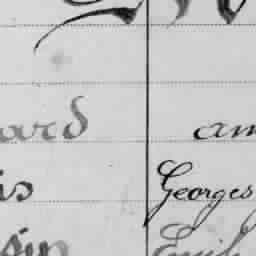 ard am
is Georges
sin Emil